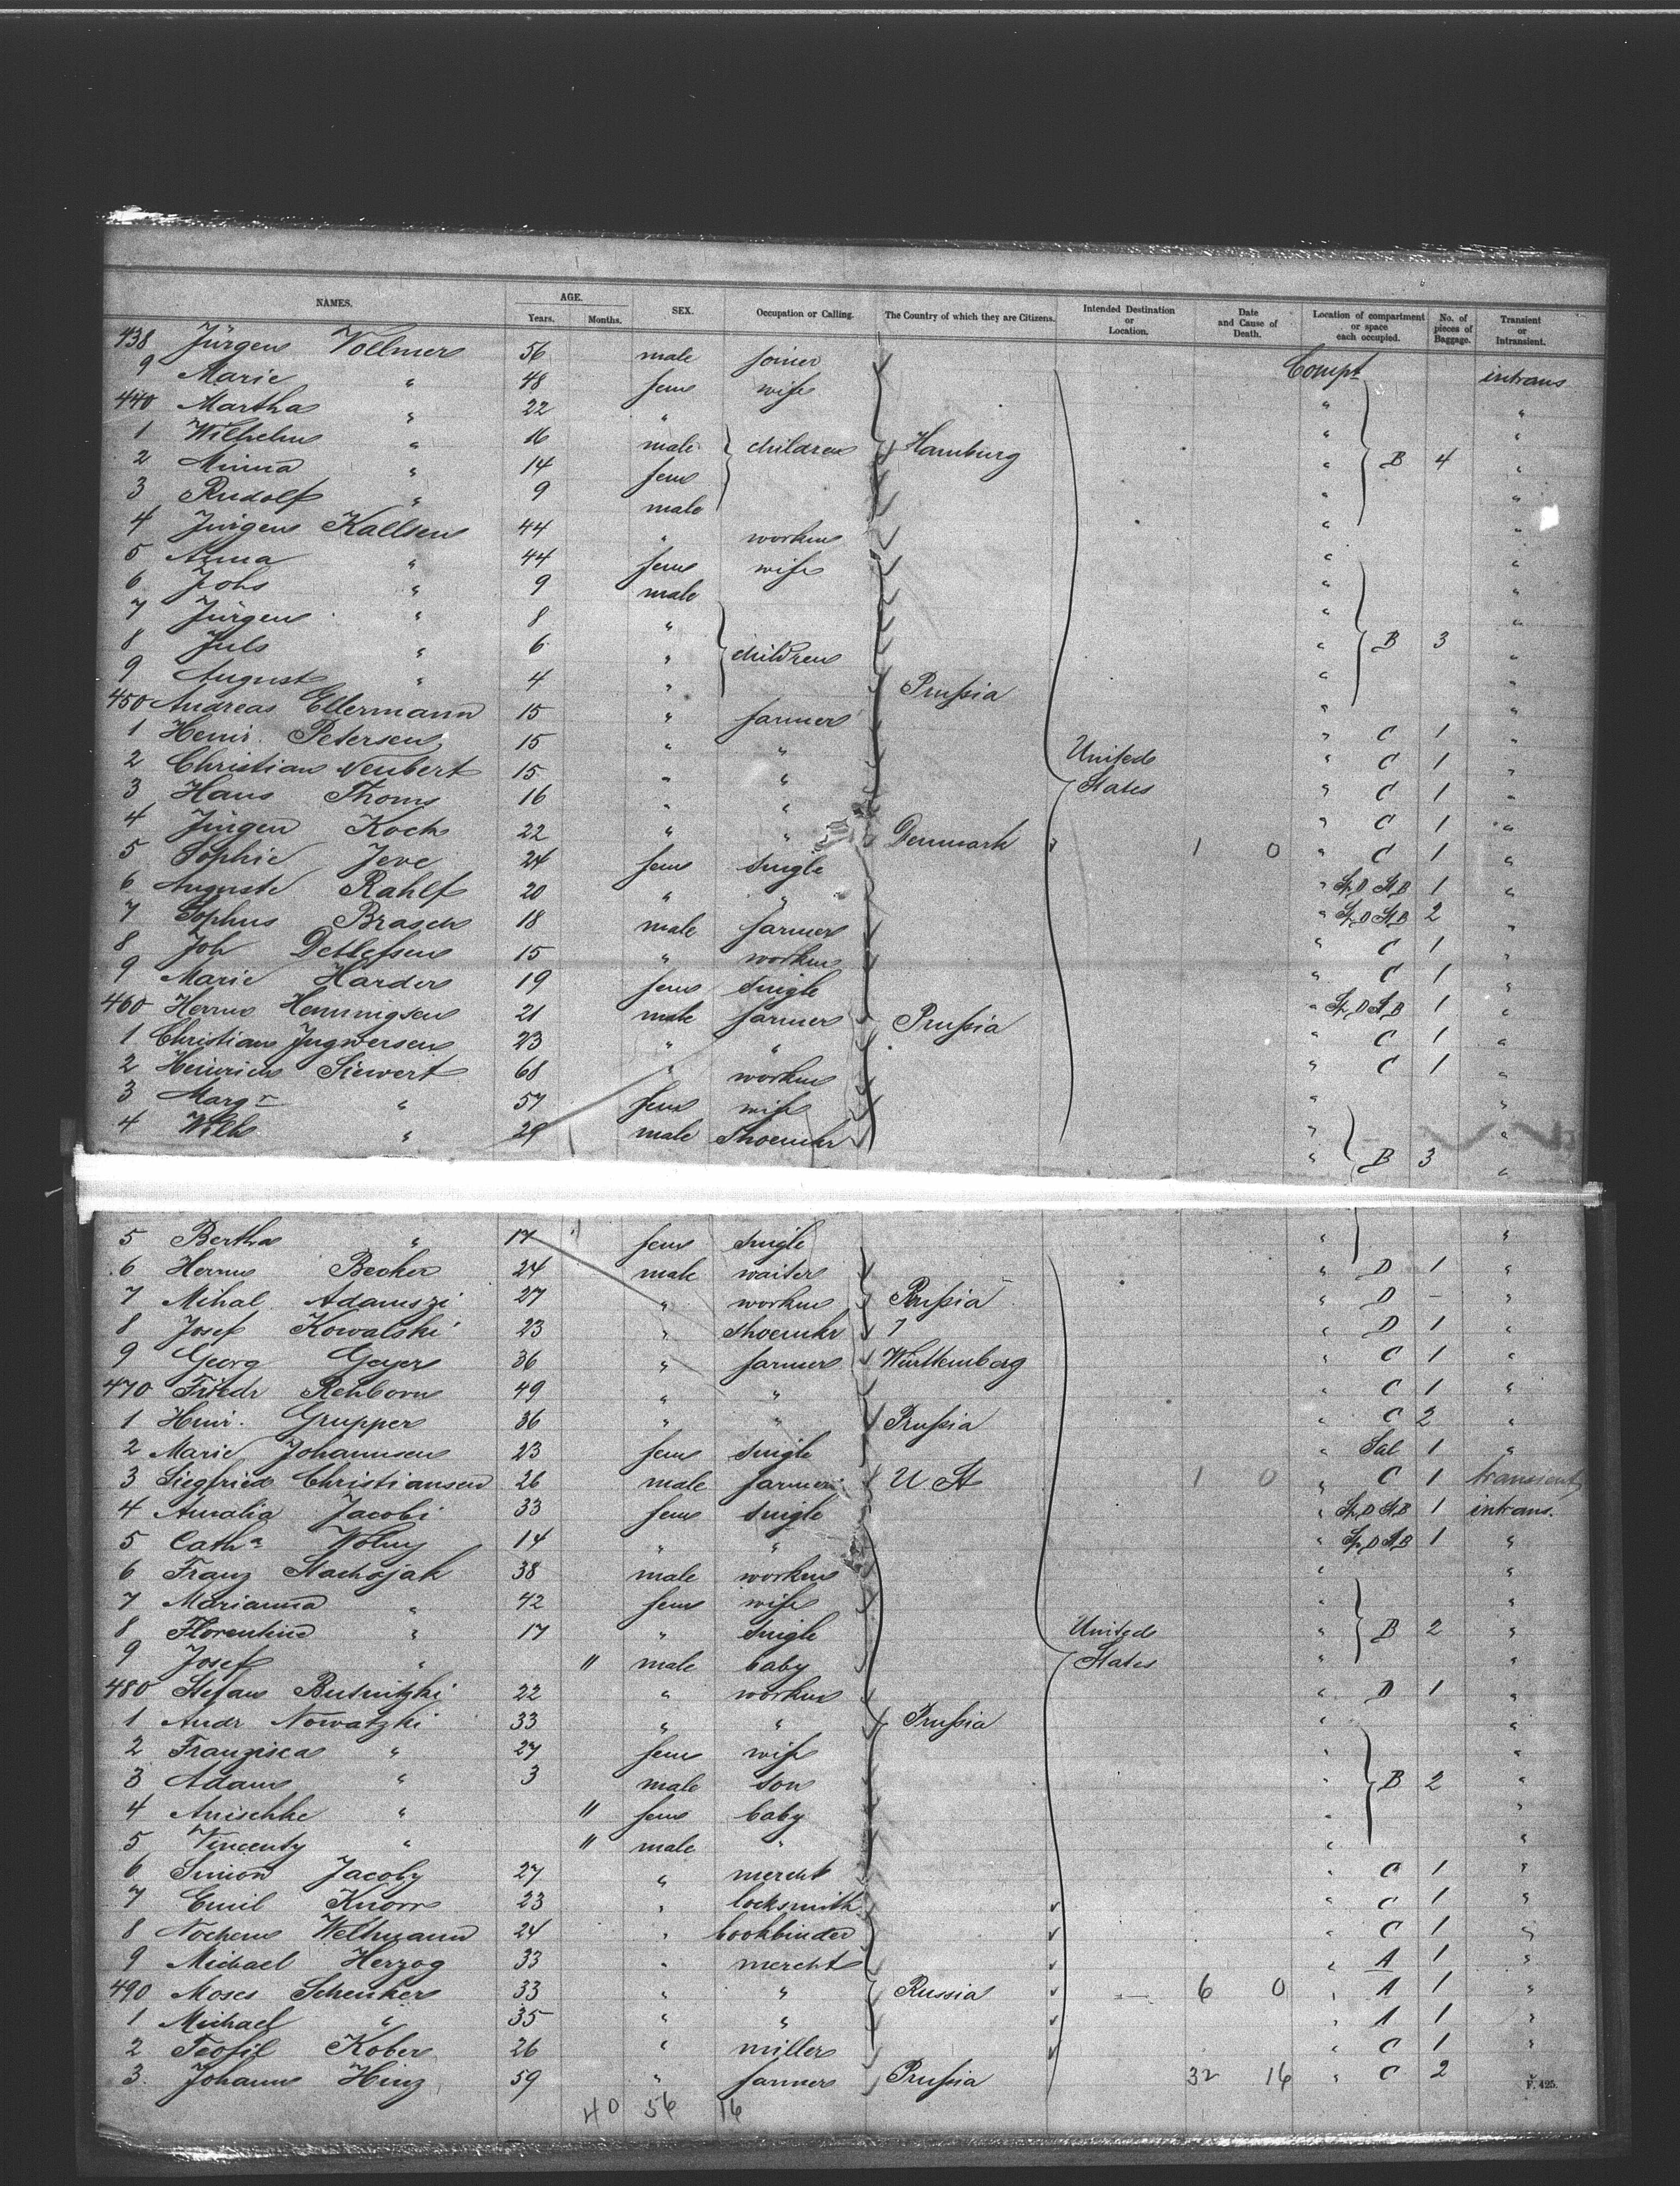 NAMES. AGE. Years. Months. SEX. Occupation or Calling. The Country of which they are Citizens. Intended Destination or Location. Date and Cause of Death. Location of compartment or space each occupied. No. of pieces of Baggage. Transient or Intransient.
438 Jürgen Vollmer 56 male joiner Compt intrans
9 Marie " 48 fem wife " "
440 Martha " 22 " " "
1 Wilhelm " 16 male children Hamburg " B 4 "
2 Minna " 14 fem " "
3 Rudolf " 9 male " "
4 Jürgen Kallsen 44 " workm " "
5 Anna " 44 fem wife " "
6 Johs " 9 male " "
7 Jürgen " 8 " " "
8 Juls " 6 " children " B 3 "
9 August " 4 " Prußia " "
450 Andreas Ellermann 15 " farmer " C 1 "
1 Heinr. Petersen 15 " " United " C 1 "
2 Christian Neubert 15 " " States " C 1 "
3 Hans Thoms 16 " " " C 1 "
4 Jürgen Koch 22 " " Denmark 1 0 " C 1 "
5 Sophie Jeve 24 fem single " Sp D St B 1 "
6 Auguste Rahlf 20 " " " Sp D St B 2 "
7 Sophus Brasch 18 male farmer " C 1 "
8 Joh Detlefsen 15 " workm " C 1 "
9 Marie Harder 19 fem single " Sp D St B 1 "
460 Herm Henningsen 21 male farmer Prußia " C 1 "
1 Christian Ingwersen 23 " " " C 1 "
2 Heinrich Siewert 68 " workm " "
3 Margr " 57 fem wife " "
4 Wilh " 29 male Shoemkr " B 3 "
5 Bertha " 17 fem single " "
6 Herm Becker 24 male waiter " D 1 "
7 Mihal Adamszi 27 " workm Prußia " D - "
8 Josef Kowalski 23 " Shoemkr " D 1 "
9 Georg Geyer 36 " farmer Württemberg " C 1 "
470 Friedr Rehborn 49 " " " C 1 "
1 Heinr. Grupper 36 " " Prußia " C 2 "
2 Marie Johannsen 23 fem single " Sal 1 "
3 Siegfried Christiansen 26 male farmer U St 1 0 " C 1 transient
4 Amalia Jacobi 33 fem single " Sp D St B 1 intrans.
5 Catha Wolny 14 " " " Sp D St B 1 "
6 Franz Stachojak 38 male workm " "
7 Marianna " 42 fem wife " "
8 Florentine " 17 " single United " B 2 "
9 Josef " 11 male baby States " "
480 Stefan Butnitzki 22 " workm " D 1 "
1 Andr Nowatzki 33 " " Prußia " "
2 Franzisca " 27 fem wife " "
3 Adam " 3 male son " B 2 "
4 Anischke " 11 fem baby " "
5 Vincenty " 11 male " " "
6 Simon Jacoby 27 " mercht " C 1 "
7 Emil Knorr 23 " locksmith " C 1 "
8 Nochem Weltmann 24 " bookbinder " C 1 "
9 Michael Herzog 33 " mercht " A 1 "
490 Moses Schenker 33 " " Russia 6 0 " A 1 "
1 Michael " 35 " " " A 1 "
2 Teofil Kober 26 " miller " C 1 "
3. Johann Hinz 59 " farmer Prußia 32 16 " C 2
40 56 16
F. 425.